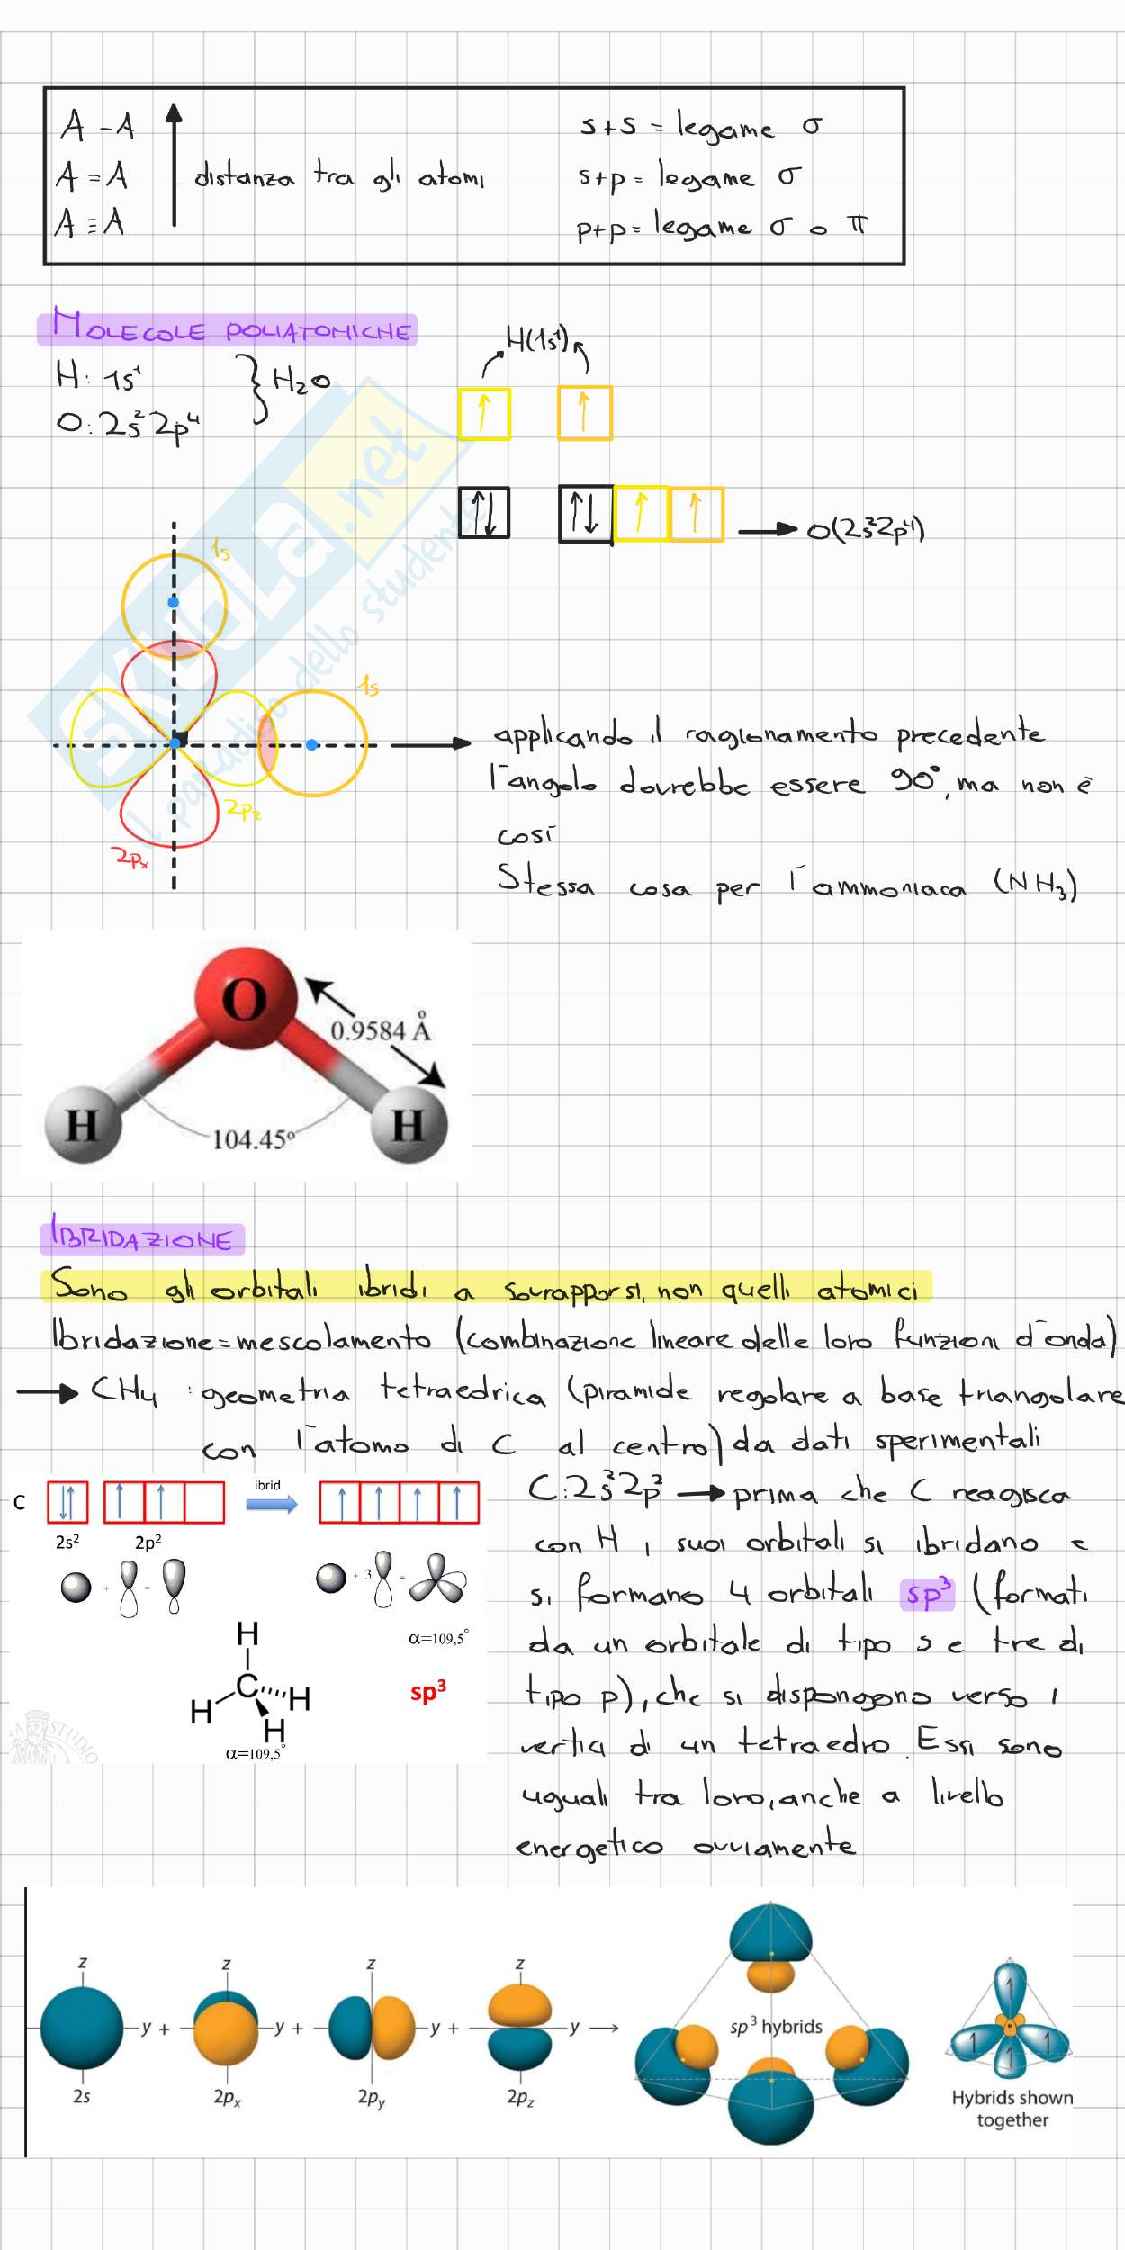 A - A
A = A
A ≡ A
distanza tra gli atomi
s+s = legame σ
s+p = legame σ
p+p = legame σ o π
MOLECOLE POLIATOMICHE
H: 1s¹
O: 2s² 2p⁴
} H₂O
H(1s¹)
↑ ↑
↑↓ ↑↓ ↑ ↑
→ O(2s²2p⁴)
1s
1s
2pz
2px
SKUOLA.net
il paradiso dello studente
applicando il ragionamento precedente
l'angolo dovrebbe essere 90°, ma non è
così
Stessa cosa per l'ammoniaca (NH₃)
O
0.9584 Å
H H
104.45°
IBRIDAZIONE
Sono gli orbitali ibridi a sovrapporsi, non quelli atomici
Ibridazione = mescolamento (combinazione lineare delle loro funzioni d'onda)
→ CH₄ : geometria tetraedrica (piramide regolare a base triangolare
con l'atomo di C al centro) da dati sperimentali
C
ibrid
2s² 2p²
α=109,5°
H
C
H H
H
sp³
α=109,5°
STUDIO
C: 2s² 2p² → prima che C reagisca
con H i suoi orbitali si ibridano e
si formano 4 orbitali sp³ (formati
da un orbitale di tipo s e tre di
tipo p), che si dispongono verso i
vertici di un tetraedro. Essi sono
uguali tra loro, anche a livello
energetico ovviamente
z z z z
y + y + y + y →
2s 2pₓ 2pᵧ 2p_z
sp³ hybrids
1
1 1
1
Hybrids shown
together